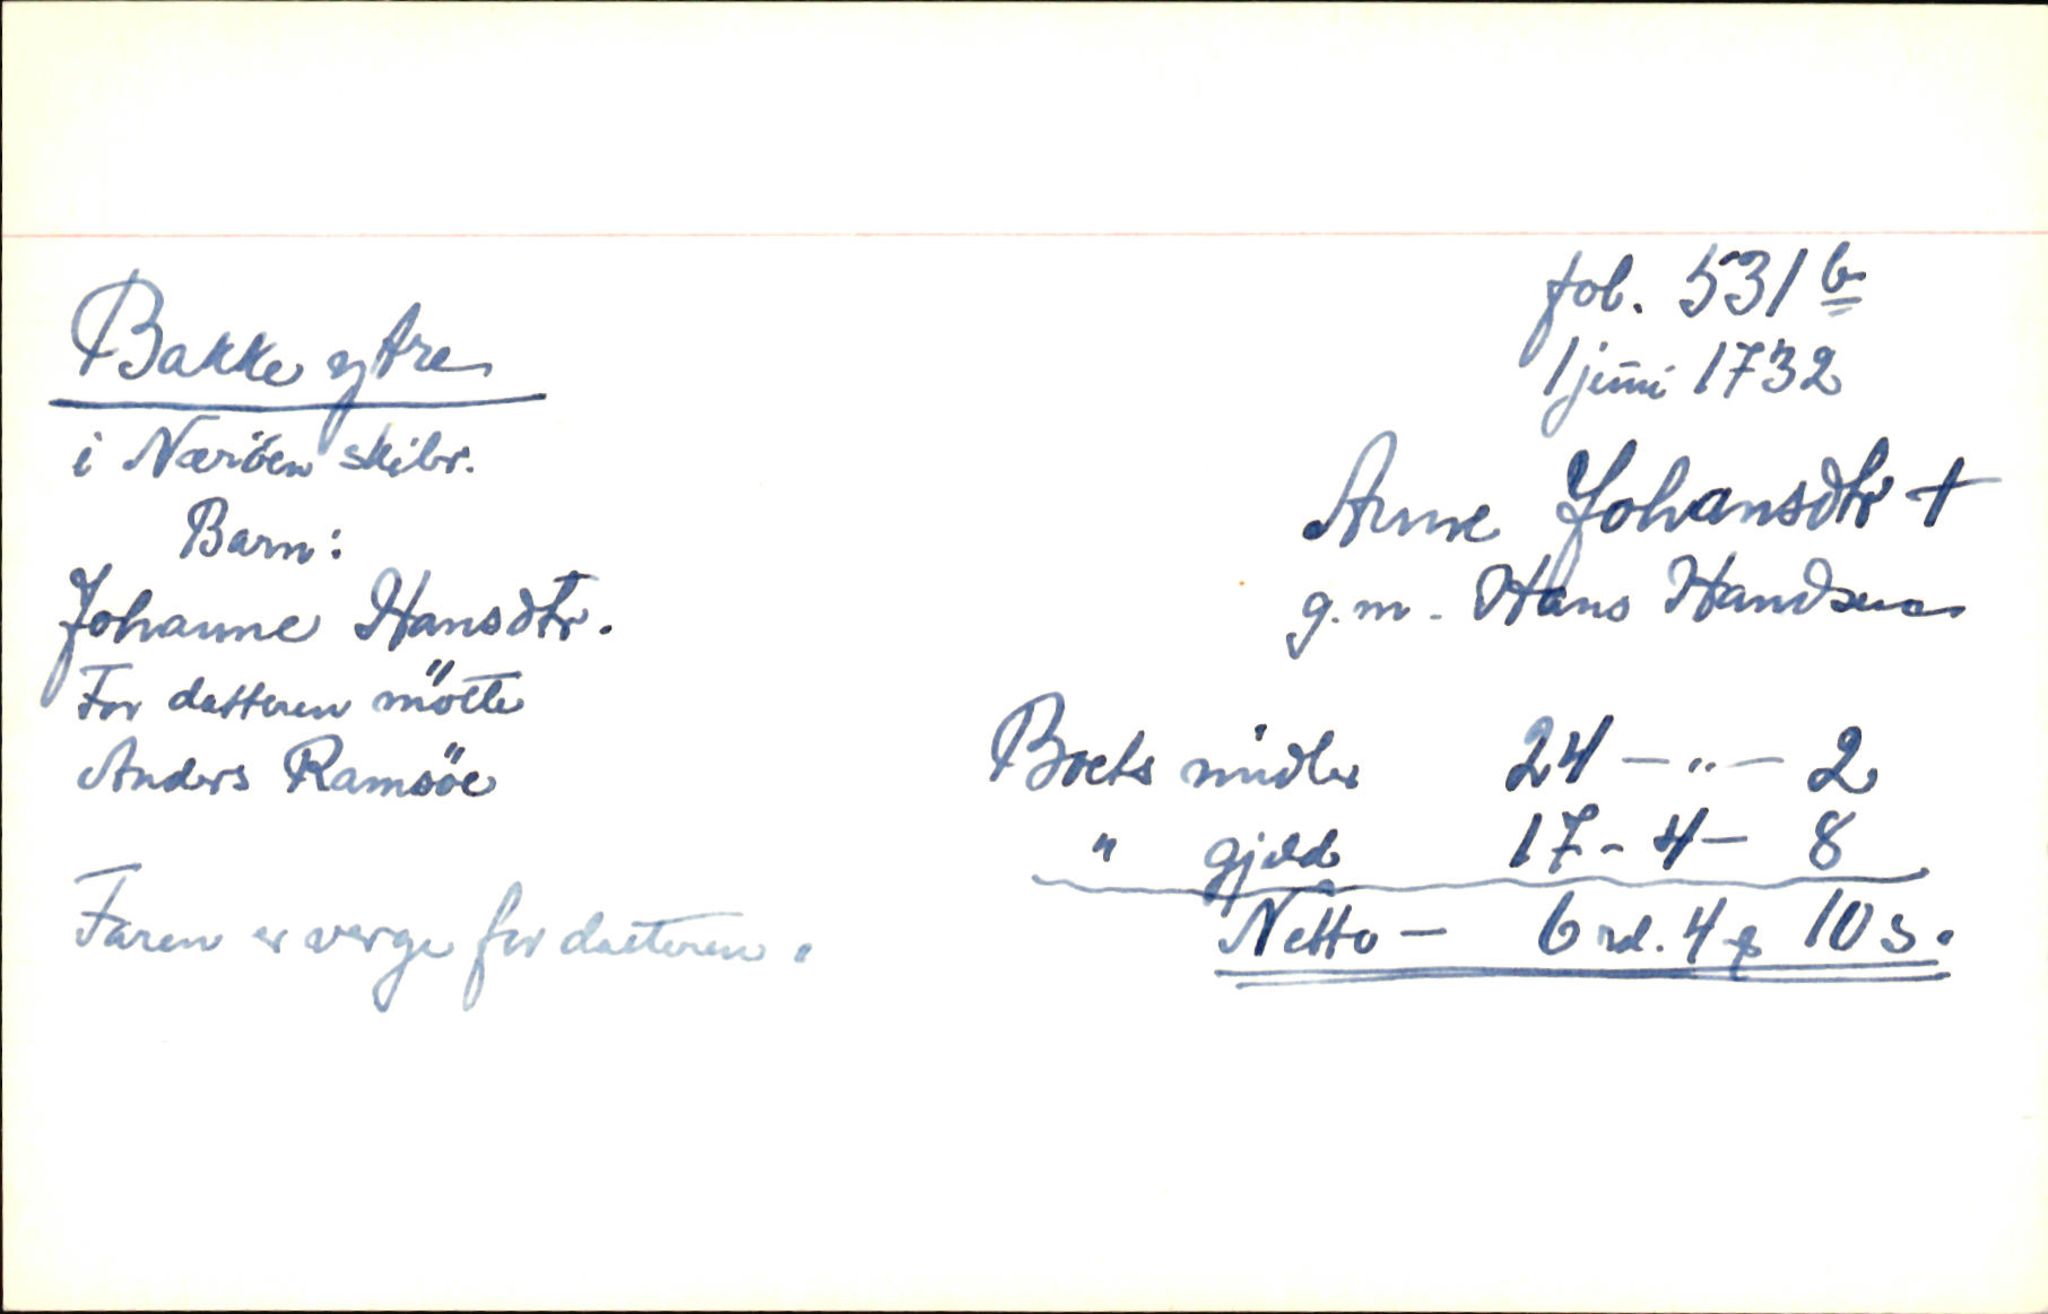 fol. 531 b
1 juni 1732
Bakke ytre
i Næröen skibr.
Barn:
Johanne Hansdtr.
For datteren mötte
Anders Ramsöe
Faren er verge for datteren.
Anne Johansdtr +
g.m. Hans Handsen
Boets midler 24 - " - 2
" gjæld 17 - 4 - 8
Netto - 6 rd. 4 10 s.